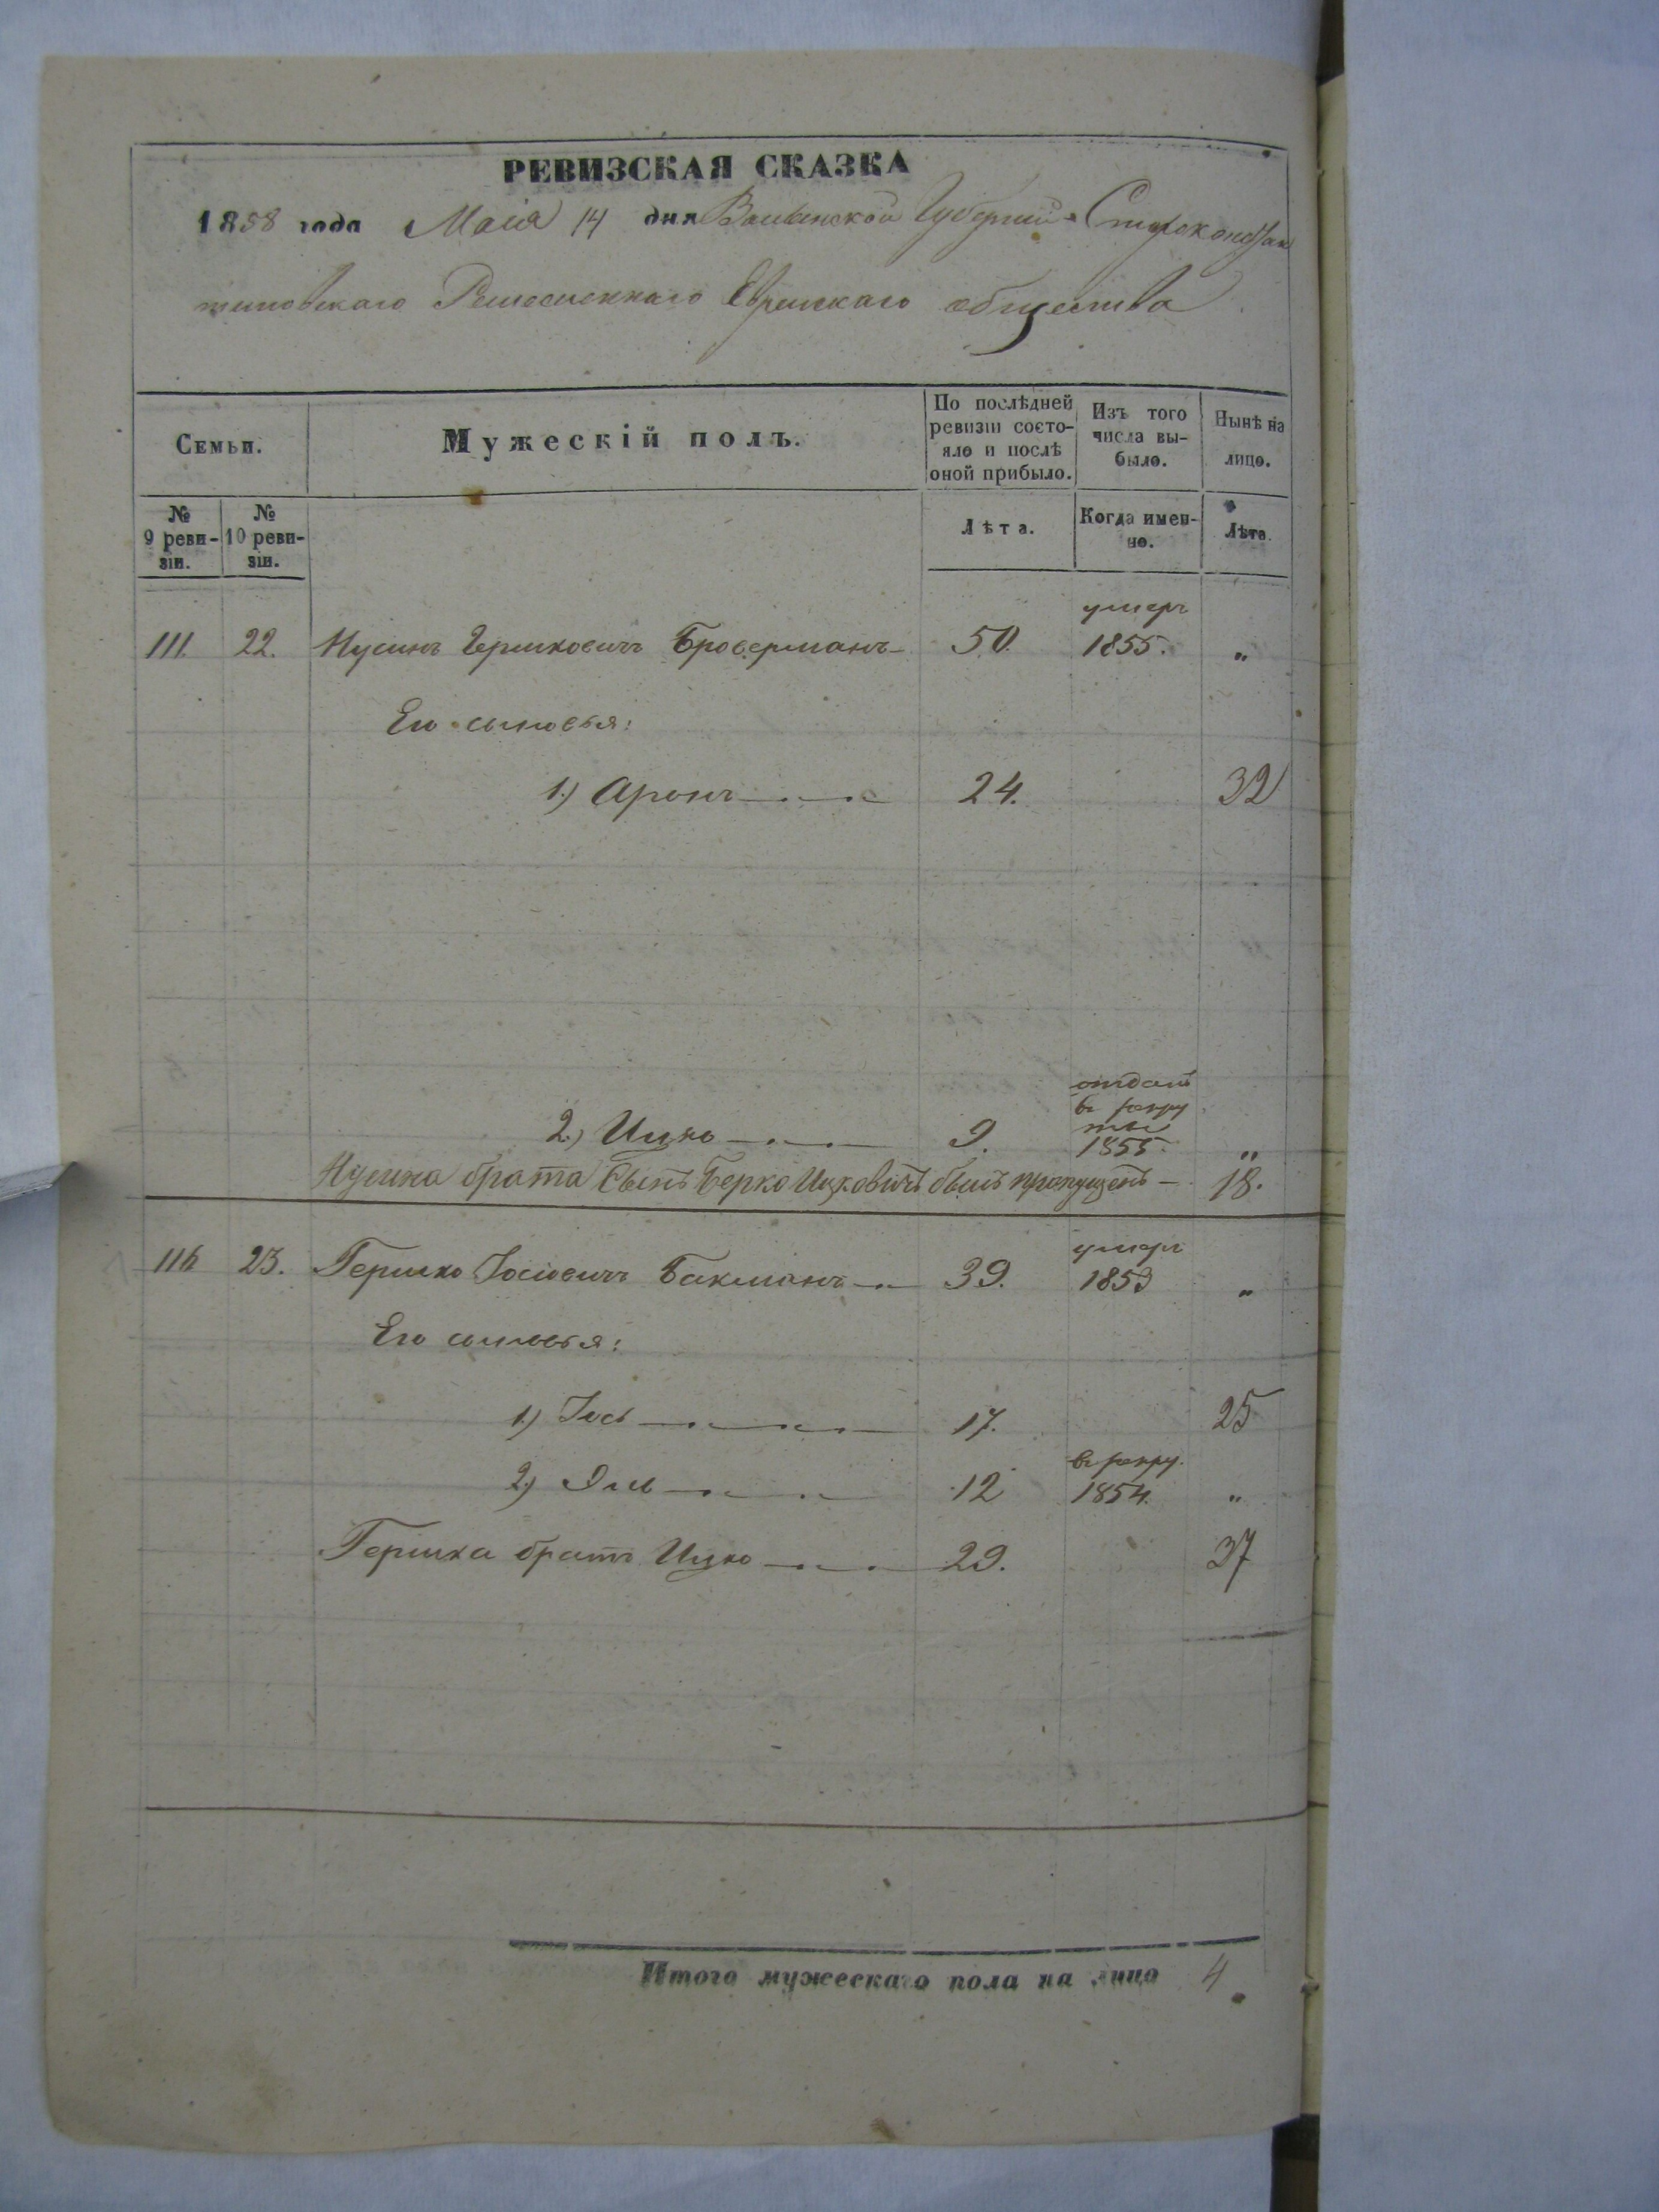 РЕВИЗСКАЯ СКАЗКА
1858 года Маія 14 дня Волынской Губерніи Староконстан
тиновскаго Ремесленнаго Еврейскаго общества
Семьи.
Мужескій полъ.
По послѣдней ревизіи состояло и послѣ оной прибыло.
Изъ того числа выбыло.
Нынѣ на лицо.
№ 9 ревизіи.
№ 10 ревизіи.
Лѣта.
Когда именно.
Лѣта.
умеръ
111. 22. Нусинъ Гершковичъ Броверманъ 50. 1855. „
Его сыновья:
1.) Аронъ 24. 32
отданъ
въ рекру
ты
2.) Ицко 9. 1855. „
Нусина брата Сынъ Берко Ицковичъ былъ пропущенъ — 18.
умеръ
116 23. Гершко Іосіовичъ Бакманъ 39. 1853 „
Его сыновья:
1.) Іось 17. 25
въ рекру.
2.) Эль 12 1854. „
Гершка братъ Ицко 29. 37
Итого мужескаго пола на лицо 4